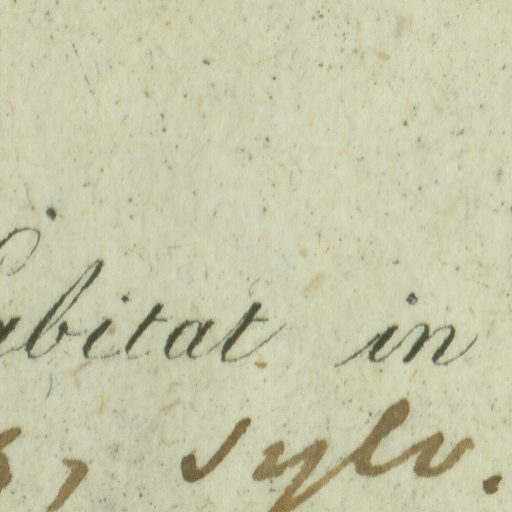 abitat in
, sylv.